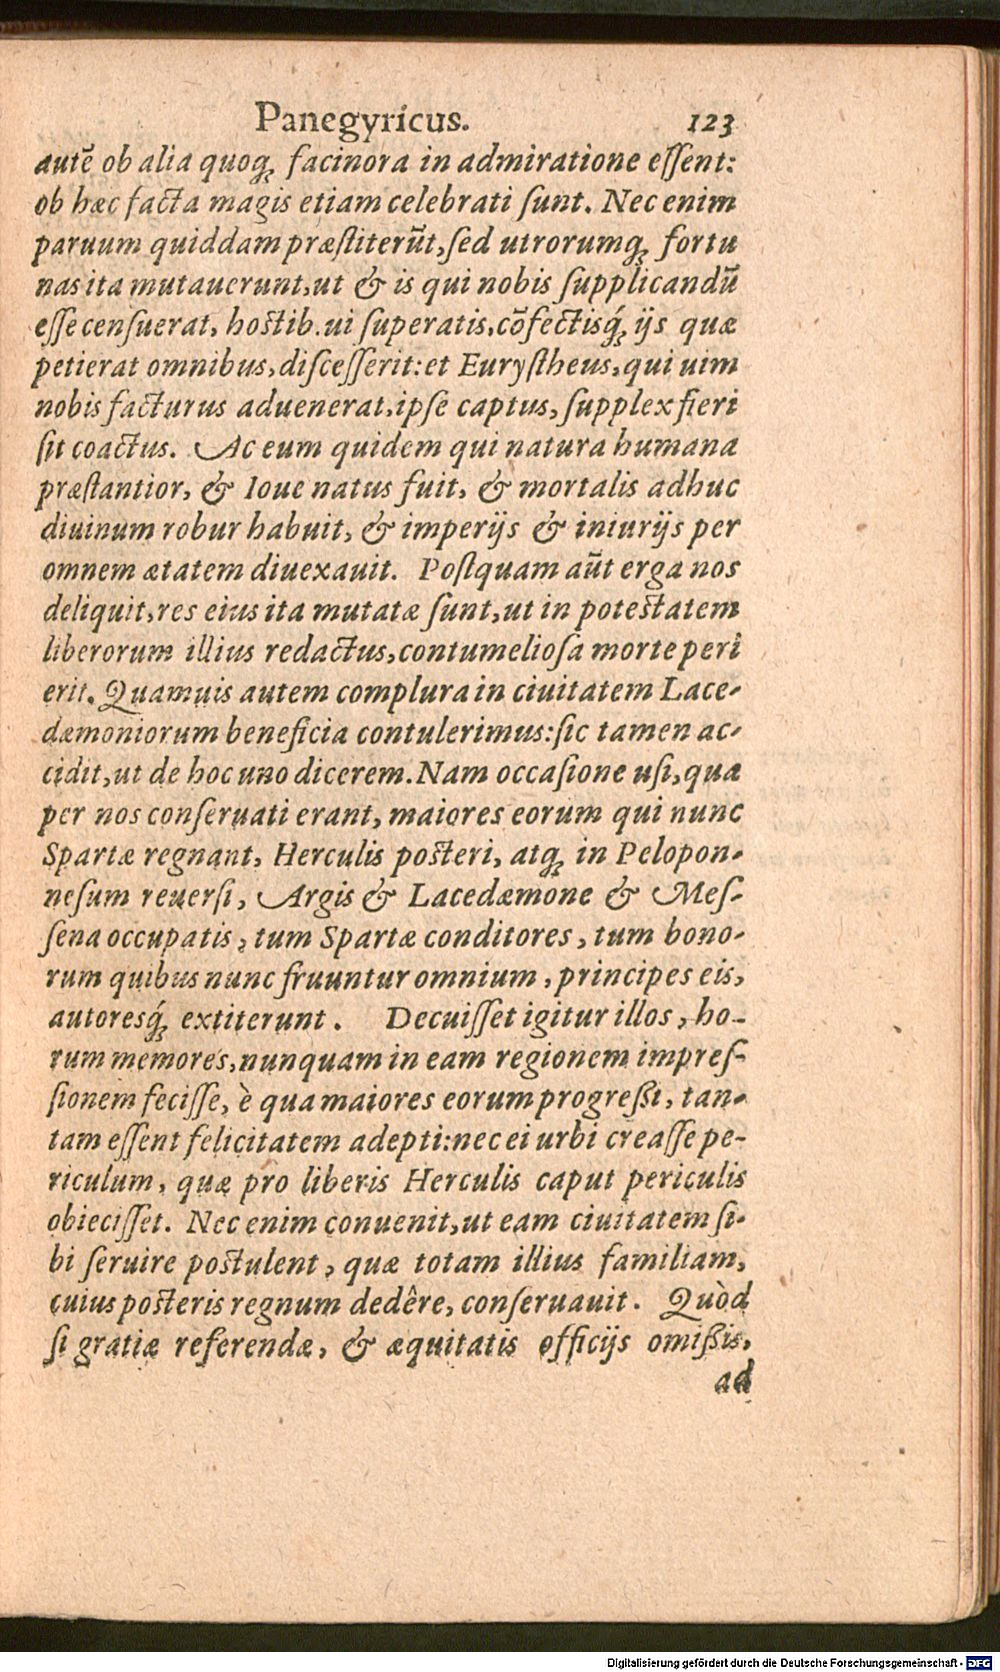 Panegyricus. 123
autē ob alia quoq́ꝫ facinora in admiratione eſſent:
ob hæc facta magis etiam celebrati ſunt. Nec enim
paruum quiddam præſtiterūt, ſed utrorumqꝫ fortu
nas ita mutauerunt, ut & is qui nobis ſupplicandū
eſſe cenſuerat, hoſtib. ui ſuperatis, cōfectisq́ꝫ ijs quæ
petierat omnibus, diſceſſerit: et Euryſtheus, qui uim
nobis facturus aduenerat, ipſe captus, ſupplex fieri
ſit coactus. Ac eum quidem qui natura humana
præſtantior, & Ioue natus fuit, & mortalis adhuc
diuinum robur habuit, & imperijs & iniurijs per
omnem ætatem diuexauit. Poſtquam aūt erga nos
deliquit, res eius ita mutatæ ſunt, ut in poteſtatem
liberorum illius redactus, contumelioſa morte peri
erit. Quamuis autem complura in ciuitatem Lace-
dæmoniorum beneficia contulerimus: ſic tamen ac-
cidit, ut de hoc uno dicerem. Nam occaſione uſi, qua
per nos conſeruati erant, maiores eorum qui nunc
Spartæ regnant, Herculis poſteri, atqꝫ in Pelopon-
neſum reuerſi, Argis & Lacedæmone & Meſ-
ſena occupatis, tum Spartæ conditores, tum bono-
rum quibus nunc fruuntur omnium, principes eis,
autoresq́ꝫ extiterunt. Decuiſſet igitur illos, ho-
rum memores, nunquam in eam regionem impreſ-
ſionem feciſſe, è qua maiores eorum progreßi, tan-
tam eſſent felicitatem adepti: nec ei urbi creaſſe pe-
riculum, quæ pro liberis Herculis caput periculis
obieciſſet. Nec enim conuenit, ut eam ciuitatem ſi-
bi ſeruire poſtulent, quæ totam illius familiam,
cuius poſteris regnum dedêre, conſeruauit. Quòd
ſi gratiæ referendæ, & æquitatis officijs omißis,
ad
Digitalisierung gefördert durch die Deutsche Forschungsgemeinschaft - DFG